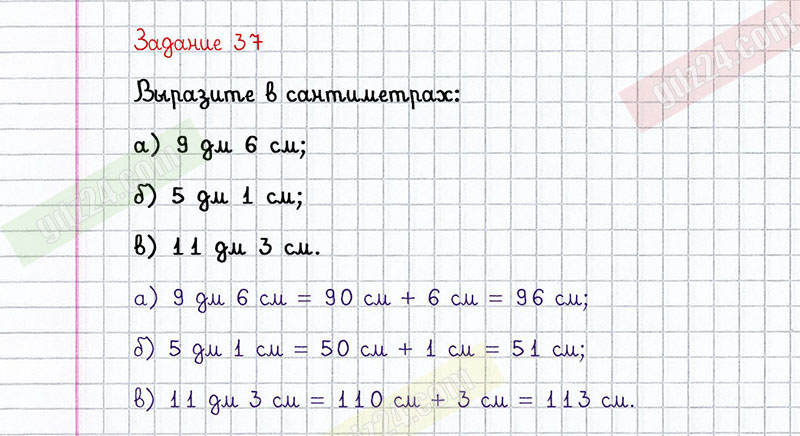 Задание 37
Выразите в сантиметрах:
а) 9 дм 6 см;
б) 5 дм 1 см;
в) 11 дм 3 см.
а) 9 дм 6 см = 90 см + 6 см = 96 см;
б) 5 дм 1 см = 50 см + 1 см = 51 см;
в) 11 дм 3 см = 110 см + 3 см = 113 см.
gdz24.com
gdz24.com
gdz24.com